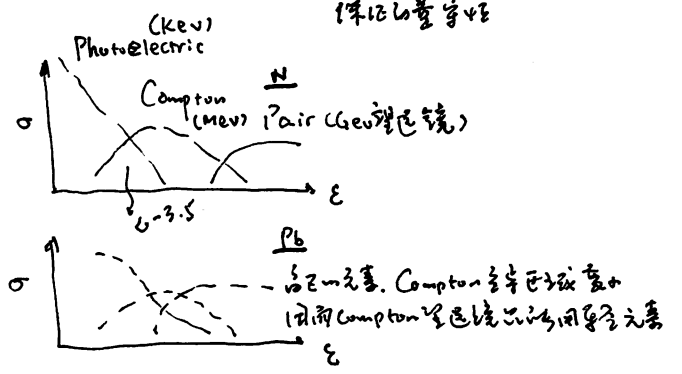 保证动量守恒
(KeV)
Photoelectric
N
Compton
(MeV) Pair (GeV望远镜)
σ
ε
ε^-3.5
Pb
σ
高Z的元素. Compton主导区域变小
因而Compton望远镜只能用轻元素
ε